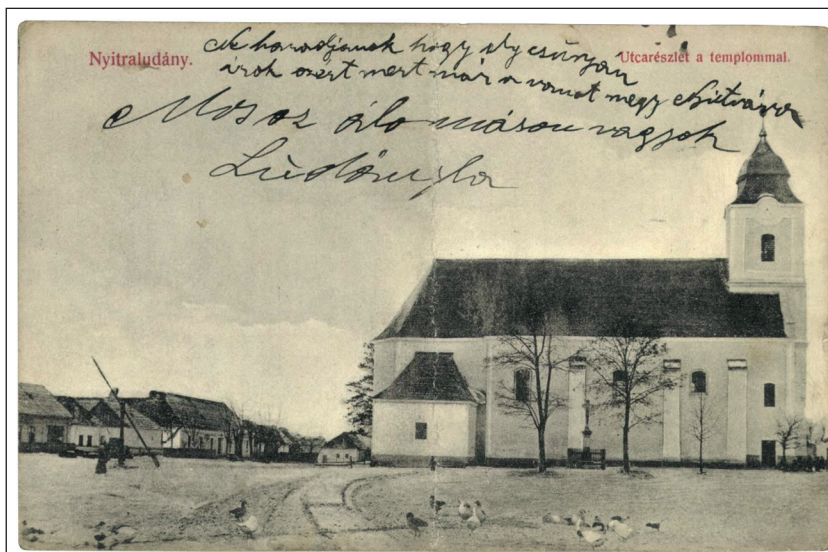 Nyitraludány.
Utcarészlet a templommal.
Ne haradjanak hogy ily csunyán
irok azert mert már a vonat megy
Mos az álo máson vagyok